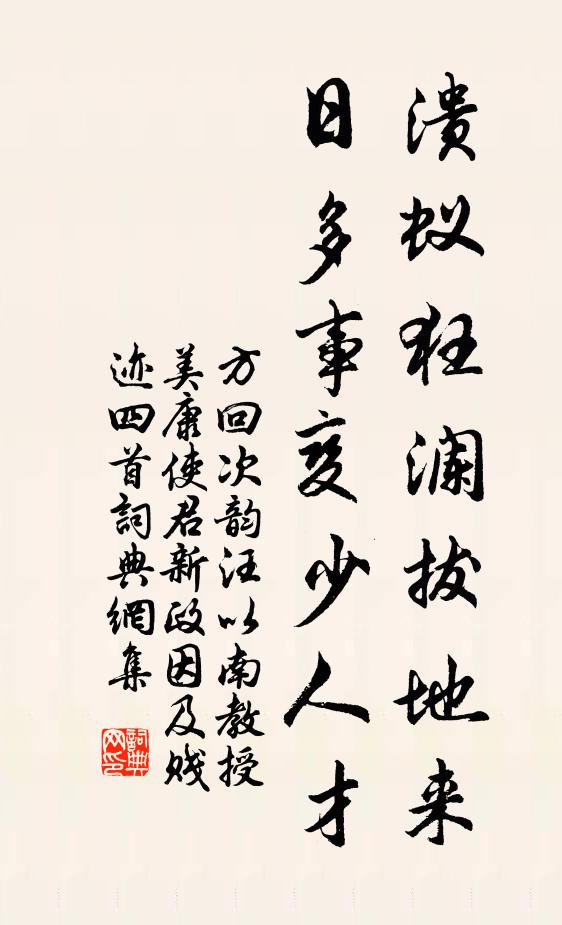 溃蚁狂澜拔地来
日多事变少人才
方回次韵汪以南教授
美康使君新政因及贱
迹四首詞典網集
詞典
网印